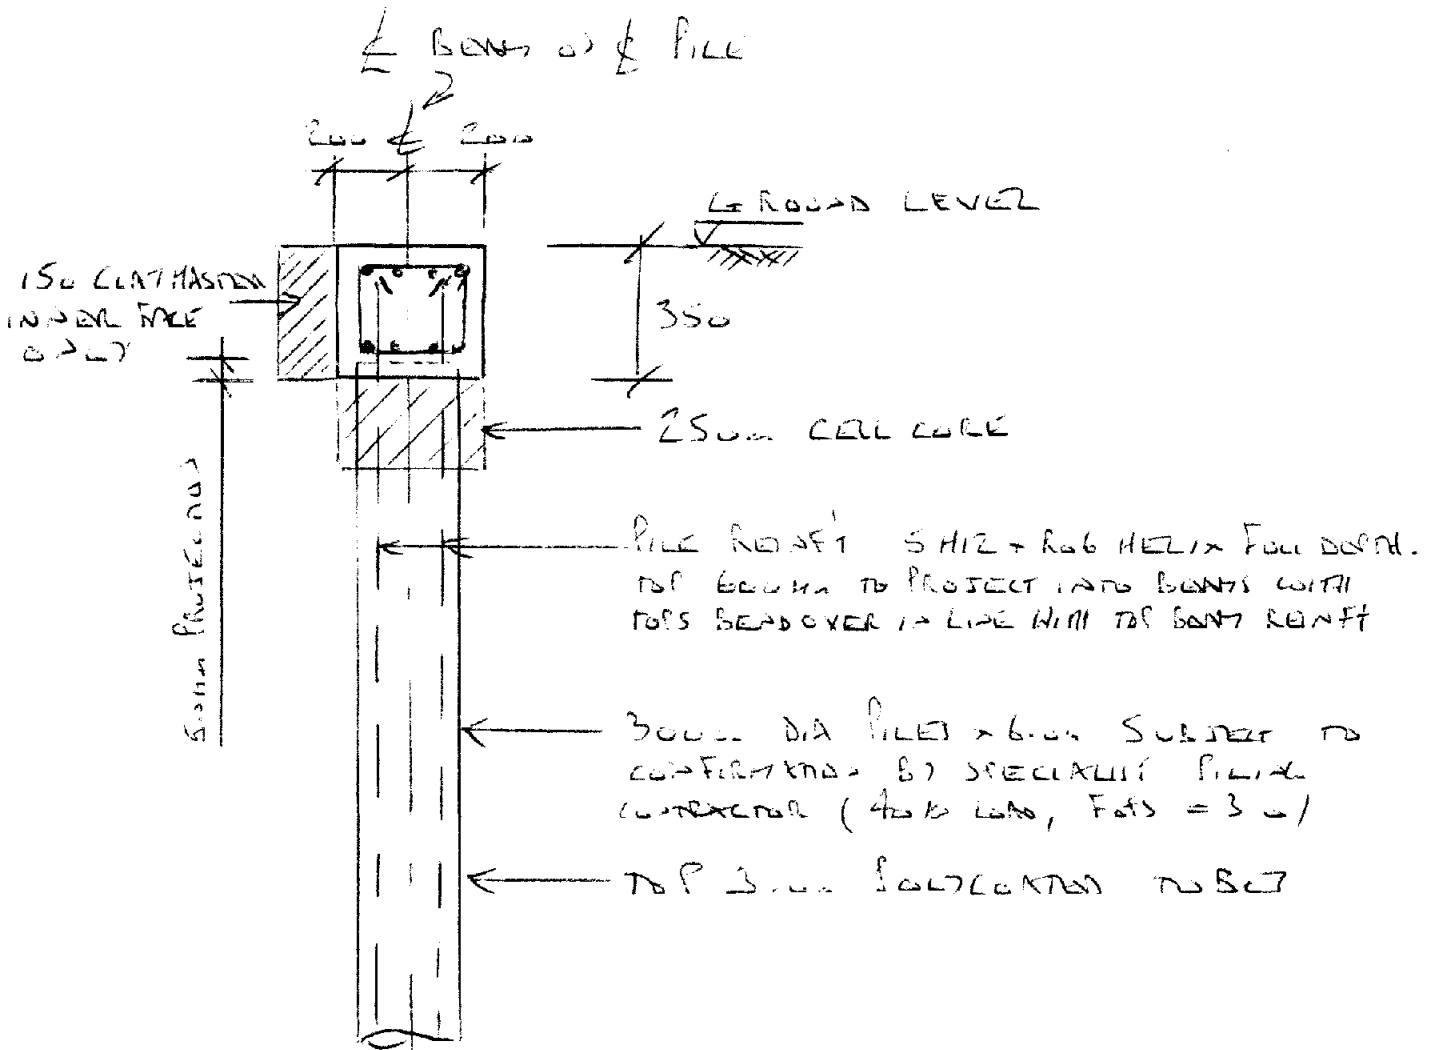 ℄ BEAM ON ℄ PILE
200 ℄ 200
GROUND LEVEL
150 CLAYMASTER
INNER FACE
ONLY
350
250mm CELLCORE
50mm PROJECTION
PILE REINF'T 5H12 + R06 HELIX FULL DEPTH.
TOP 600mm TO PROJECT INTO BEAMS WITH
TOPS BENDOVER IN LINE WITH TOP BEAM REINFT
300mm DIA PILES x 6.0m SUBJECT TO
CONFIRMATION BY SPECIALIST PILING
CONTRACTOR ( LOAD, FofS = 3.0)
TOP 3.0m